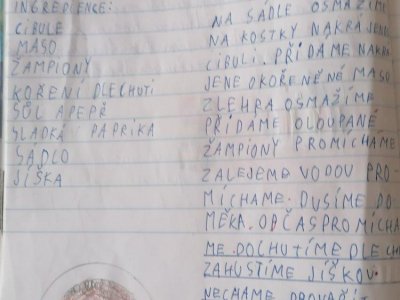 INGREDIENCE:
CIBULE
MASO
ŽAMPIONY
KOŘENÍ DLE CHUTI
SŮL A PEPŘ
SLADKÁ PAPRIKA
SÁDLO
JÍŠKA
NA SÁDLE OSMAŽÍME
NA KOSTKY NAKRÁJENO
CIBULI. PŘIDÁME NAKRÁ
JENE OKOŘENĚNÉ MASO
ZLEHRA OSMAŽÍME
PŘIDÁME OLOUPANÉ
ŽAMPIONY PROMÍCHÁME
ZALEJEME VODOU PRO-
MÍCHAME. DUSÍME DO
MĚKA. OBČAS PROMÍCHA
ME DOCHUTÍME DLE CHU
ZAHUSTÍME JÍŠKOU.
NECHÁME PROVAŘI